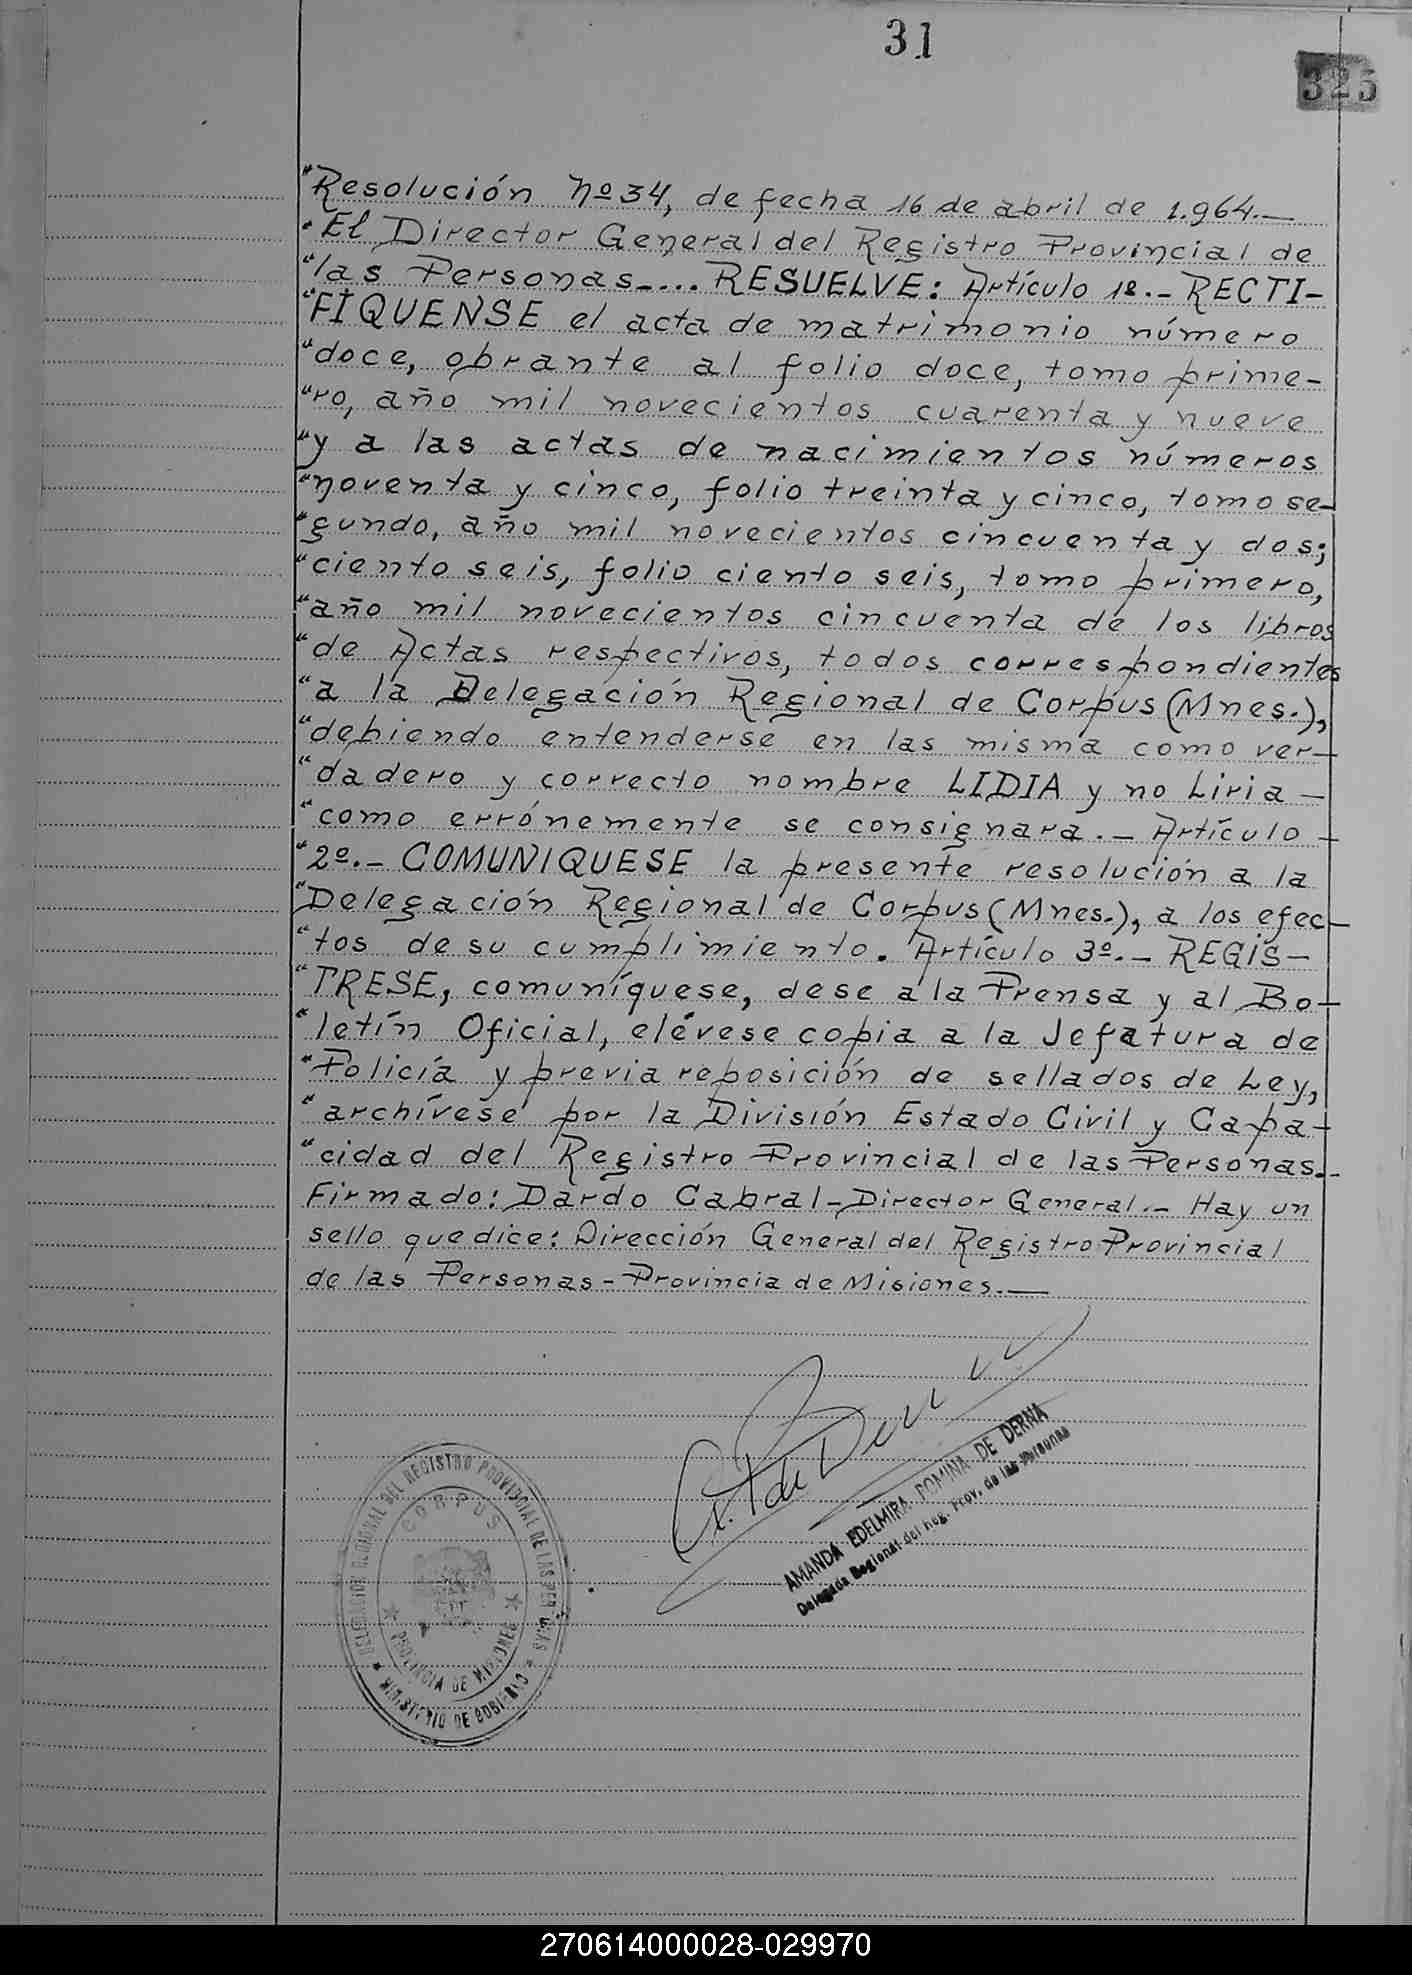 31
325
"Resolución Nº 34, de fecha 16 de abril de 1.964.—
"El Director General del Registro Provincial de
"las Personas-.... RESUELVE: Artículo 1º.- RECTI-
"FÍQUENSE el acta de matrimonio número
"doce, obrante al folio doce, tomo prime-
"ro, año mil novecientos cuarenta y nueve
"y a las actas de nacimientos números
"noventa y cinco, folio treinta y cinco, tomo se-
"gundo, año mil novecientos cincuenta y dos;
"ciento seis, folio ciento seis, tomo primero,
"año mil novecientos cincuenta de los libros
"de Actas respectivos, todos correspondientes
"a la Delegación Regional de Corpus (Mnes.),
"debiendo entenderse en las misma como ver-
"dadero y correcto nombre LIDIA y no Liria —
"como errónemente se consignara.- Artículo -
"2º.- COMUNIQUESE la presente resolución a la
"Delegación Regional de Corpus (Mnes.), a los efec-
"tos de su cumplimiento. Artículo 3º.- REGIS-
"TRESE, comuníquese, dese a la Prensa y al Bo-
"letín Oficial, elévese copia a la Jefatura de
"Policía y previa reposición de sellados de Ley,
"archívese por la División Estado Civil y Capa-
"cidad del Registro Provincial de las Personas.-
Firmado: Dardo Cabral-Director General.- Hay un
sello que dice: Dirección General del Registro Provincial
de las Personas-Provincia de Misiones.—
AMANDA EDELMIRA ROMINA DE DERNA
Delegada Regional del Reg. Prov. de las Personas
DELEGACION REGIONAL DEL REGISTRO PROVINCIAL DE LAS PERSONAS
CORPUS
PROVINCIA DE MISIONES
MINISTERIO DE GOBIERNO
270614000028-029970